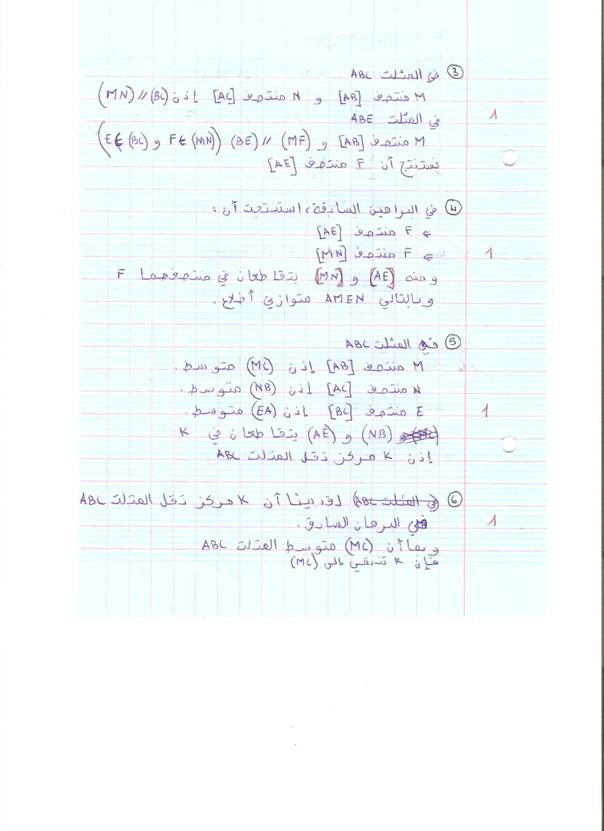 ③ في المثلث ABC
M منتصف [AB] و N منتصف [AC] إذن (MN) // (BC)
1
في المثلث ABE
M منتصف [AB] و (MF) // (BE) (F ∈ (MN) و E ∈ (BC))
نستنتج أن F منتصف [AE]
④ في البراهين السابقة، استنتجت أن :
F منتصف [AE]
F منتصف [MN]
1
و منه [AE] و [MN] يتقاطعان في منتصفهما F
و بالتالي AMEN متوازي أضلاع.
⑤ في المثلث ABC
M منتصف [AB] إذن (MC) متوسط.
N منتصف [AC] إذن (NB) متوسط.
E منتصف [BC] إذن (EA) متوسط.
1
(NB) و (AE) يتقاطعان في K
إذن K مركز ثقل المثلث ABC
⑥ لقد بينا أن K مركز ثقل المثلث ABC
في البرهان السابق.
1
و بما أن (MC) متوسط المثلث ABC
فإن K تنتمي إلى (MC)